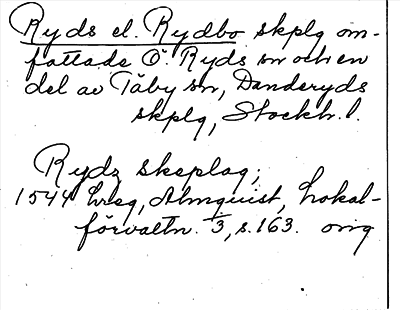 Ryds el. Rydbo skplg om-
fattade Ö. Ryds sn och en
del av Täby sn, Danderyds
skplg, Stockh. l.
Rydz skeplag;
1544 hrsg, Almquist, Lokal-
förvaltn. 1/3, s. 163. orig